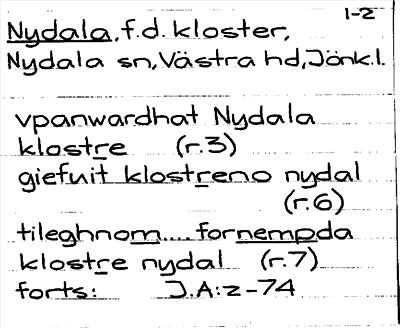 1-2
Nydala, f.d. kloster,
Nydala sn, Västra hd, Jönk.l.
vpanwardhat Nydala
klostre (r.3)
giefuit klostreno nydal
(r.6)
tileghnom.... fornempda
klostre nydal (r.7)
forts: J.A:2-74